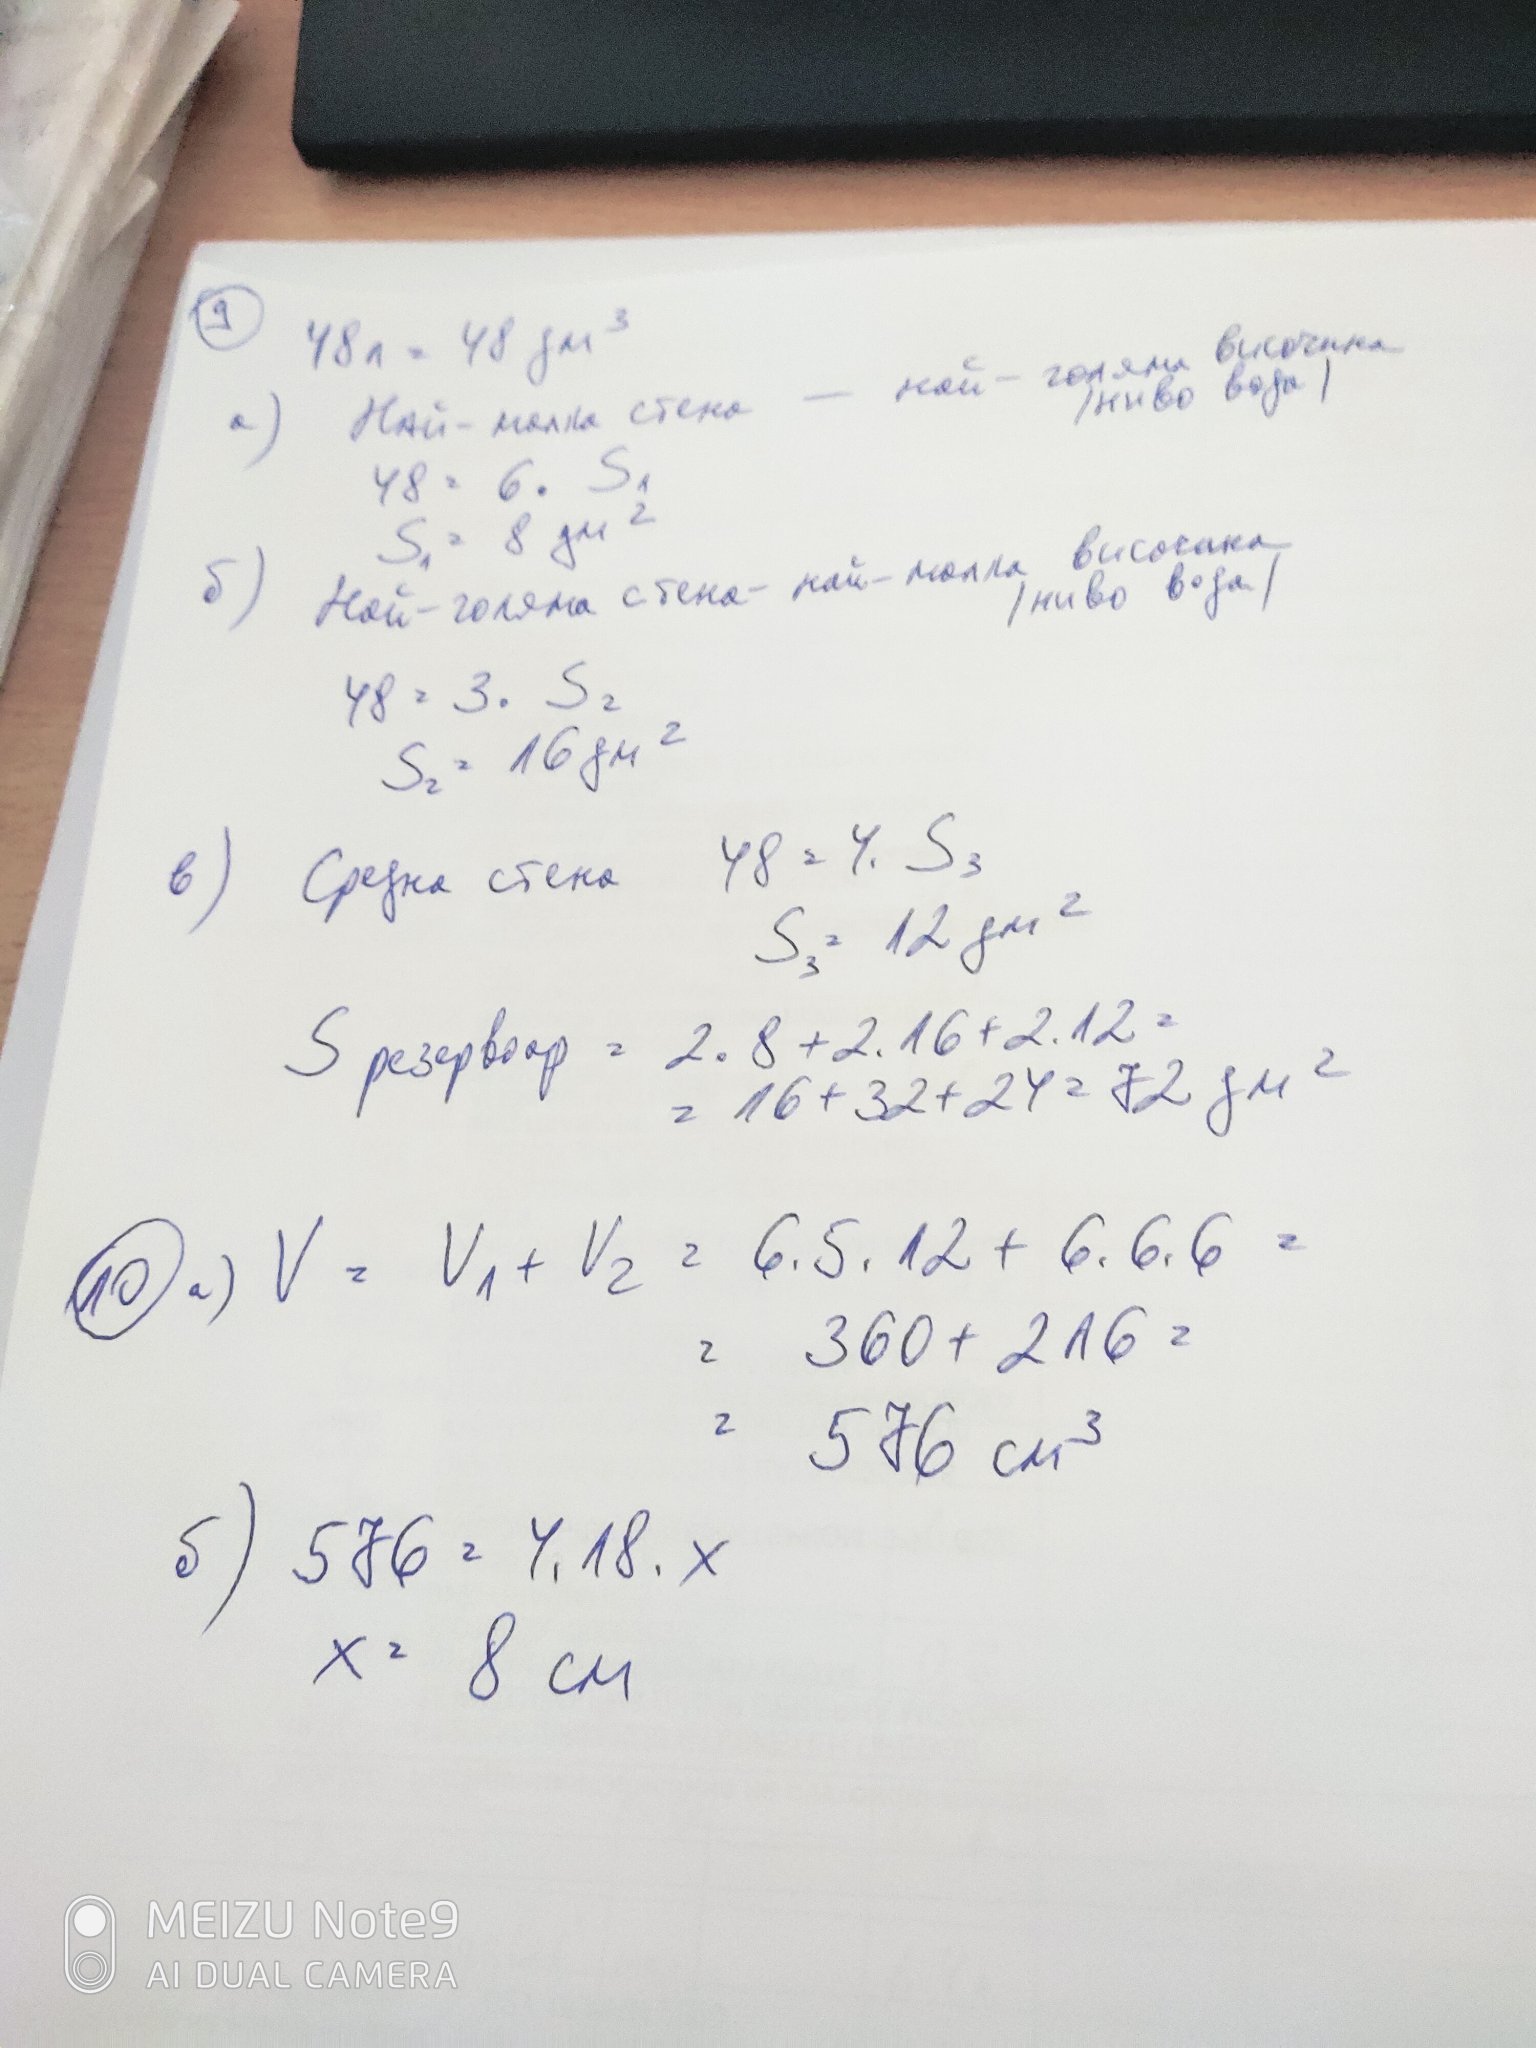 9 48л = 48 дм³
а) Най-малка стена — най-голяма височина
/ниво вода/
48 = 6. S₁
S₁ = 8 дм²
б) Най-голяма стена - най-малка височина
/ниво вода/
48 = 3. S₂
S₂ = 16 дм²
в) Средна стена 48 = 4. S₃
S₃ = 12 дм²
S резервоар = 2.8+2.16+2.12 =
= 16+32+24 = 72 дм²
10 а) V = V₁ + V₂ = 6.5.12 + 6.6.6 =
= 360 + 216 =
= 576 см³
б) 576 = 4.18.x
x = 8 см
MEIZU Note9
AI DUAL CAMERA